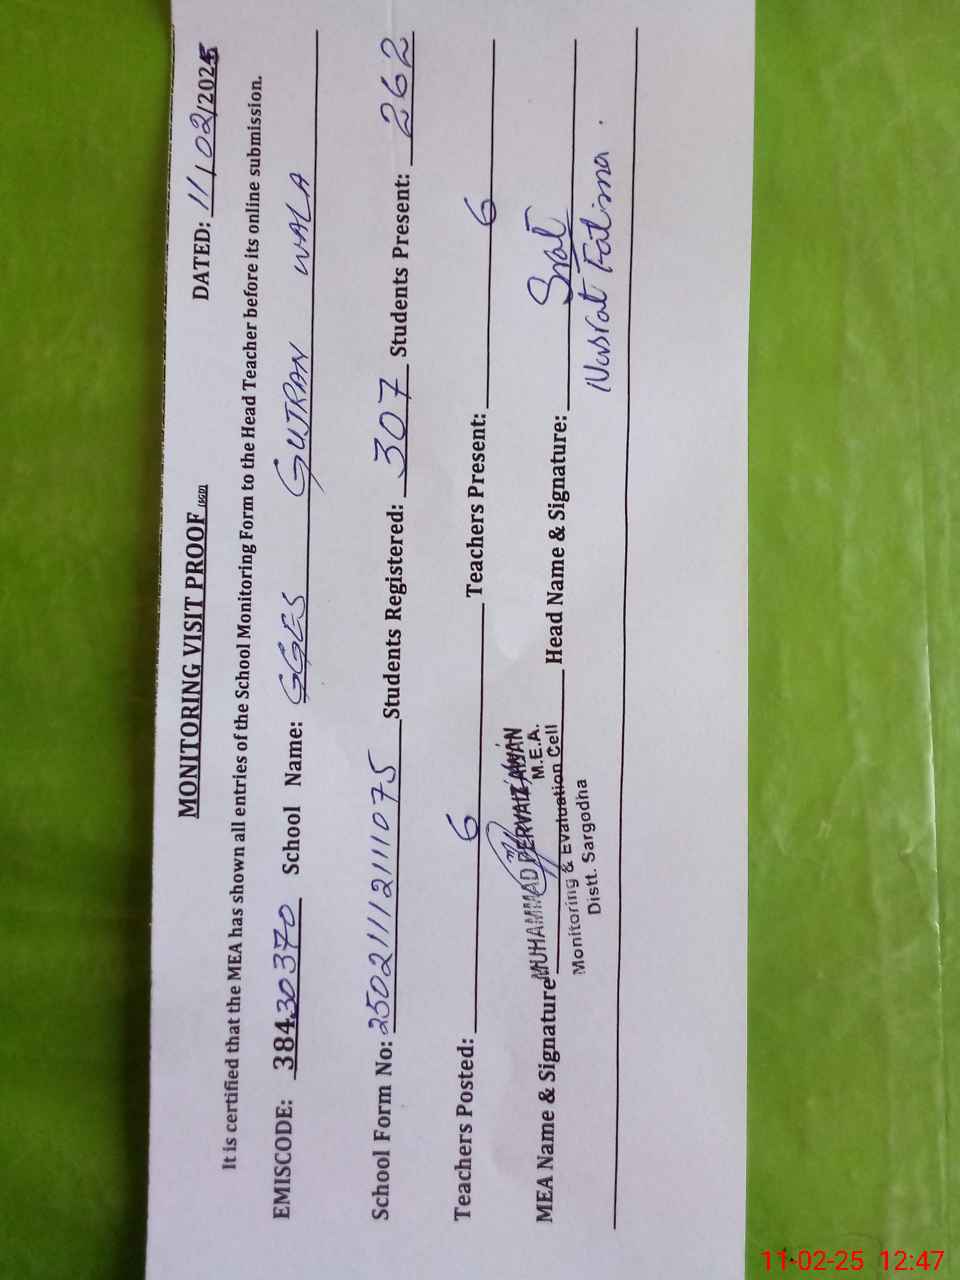 MONITORING VISIT PROOF DATED: 11/02/2025
It is certified that the MEA has shown all entries of the School Monitoring Form to the Head Teacher before its online submission.
EMISCODE: 38430370 School Name: GGES GUJRAN WALA
School Form No: 2502111121111075 Students Registered: 307 Students Present: 262
Teachers Posted: 6 Teachers Present: 6
MEA Name & Signature MUHAMMAD PERVAIZ AWAN Head Name & Signature:
M.E.A.
Monitoring & Evaluation Cell
Distt. Sargodha
Nusrat Fatima.
11-02-25 12:47